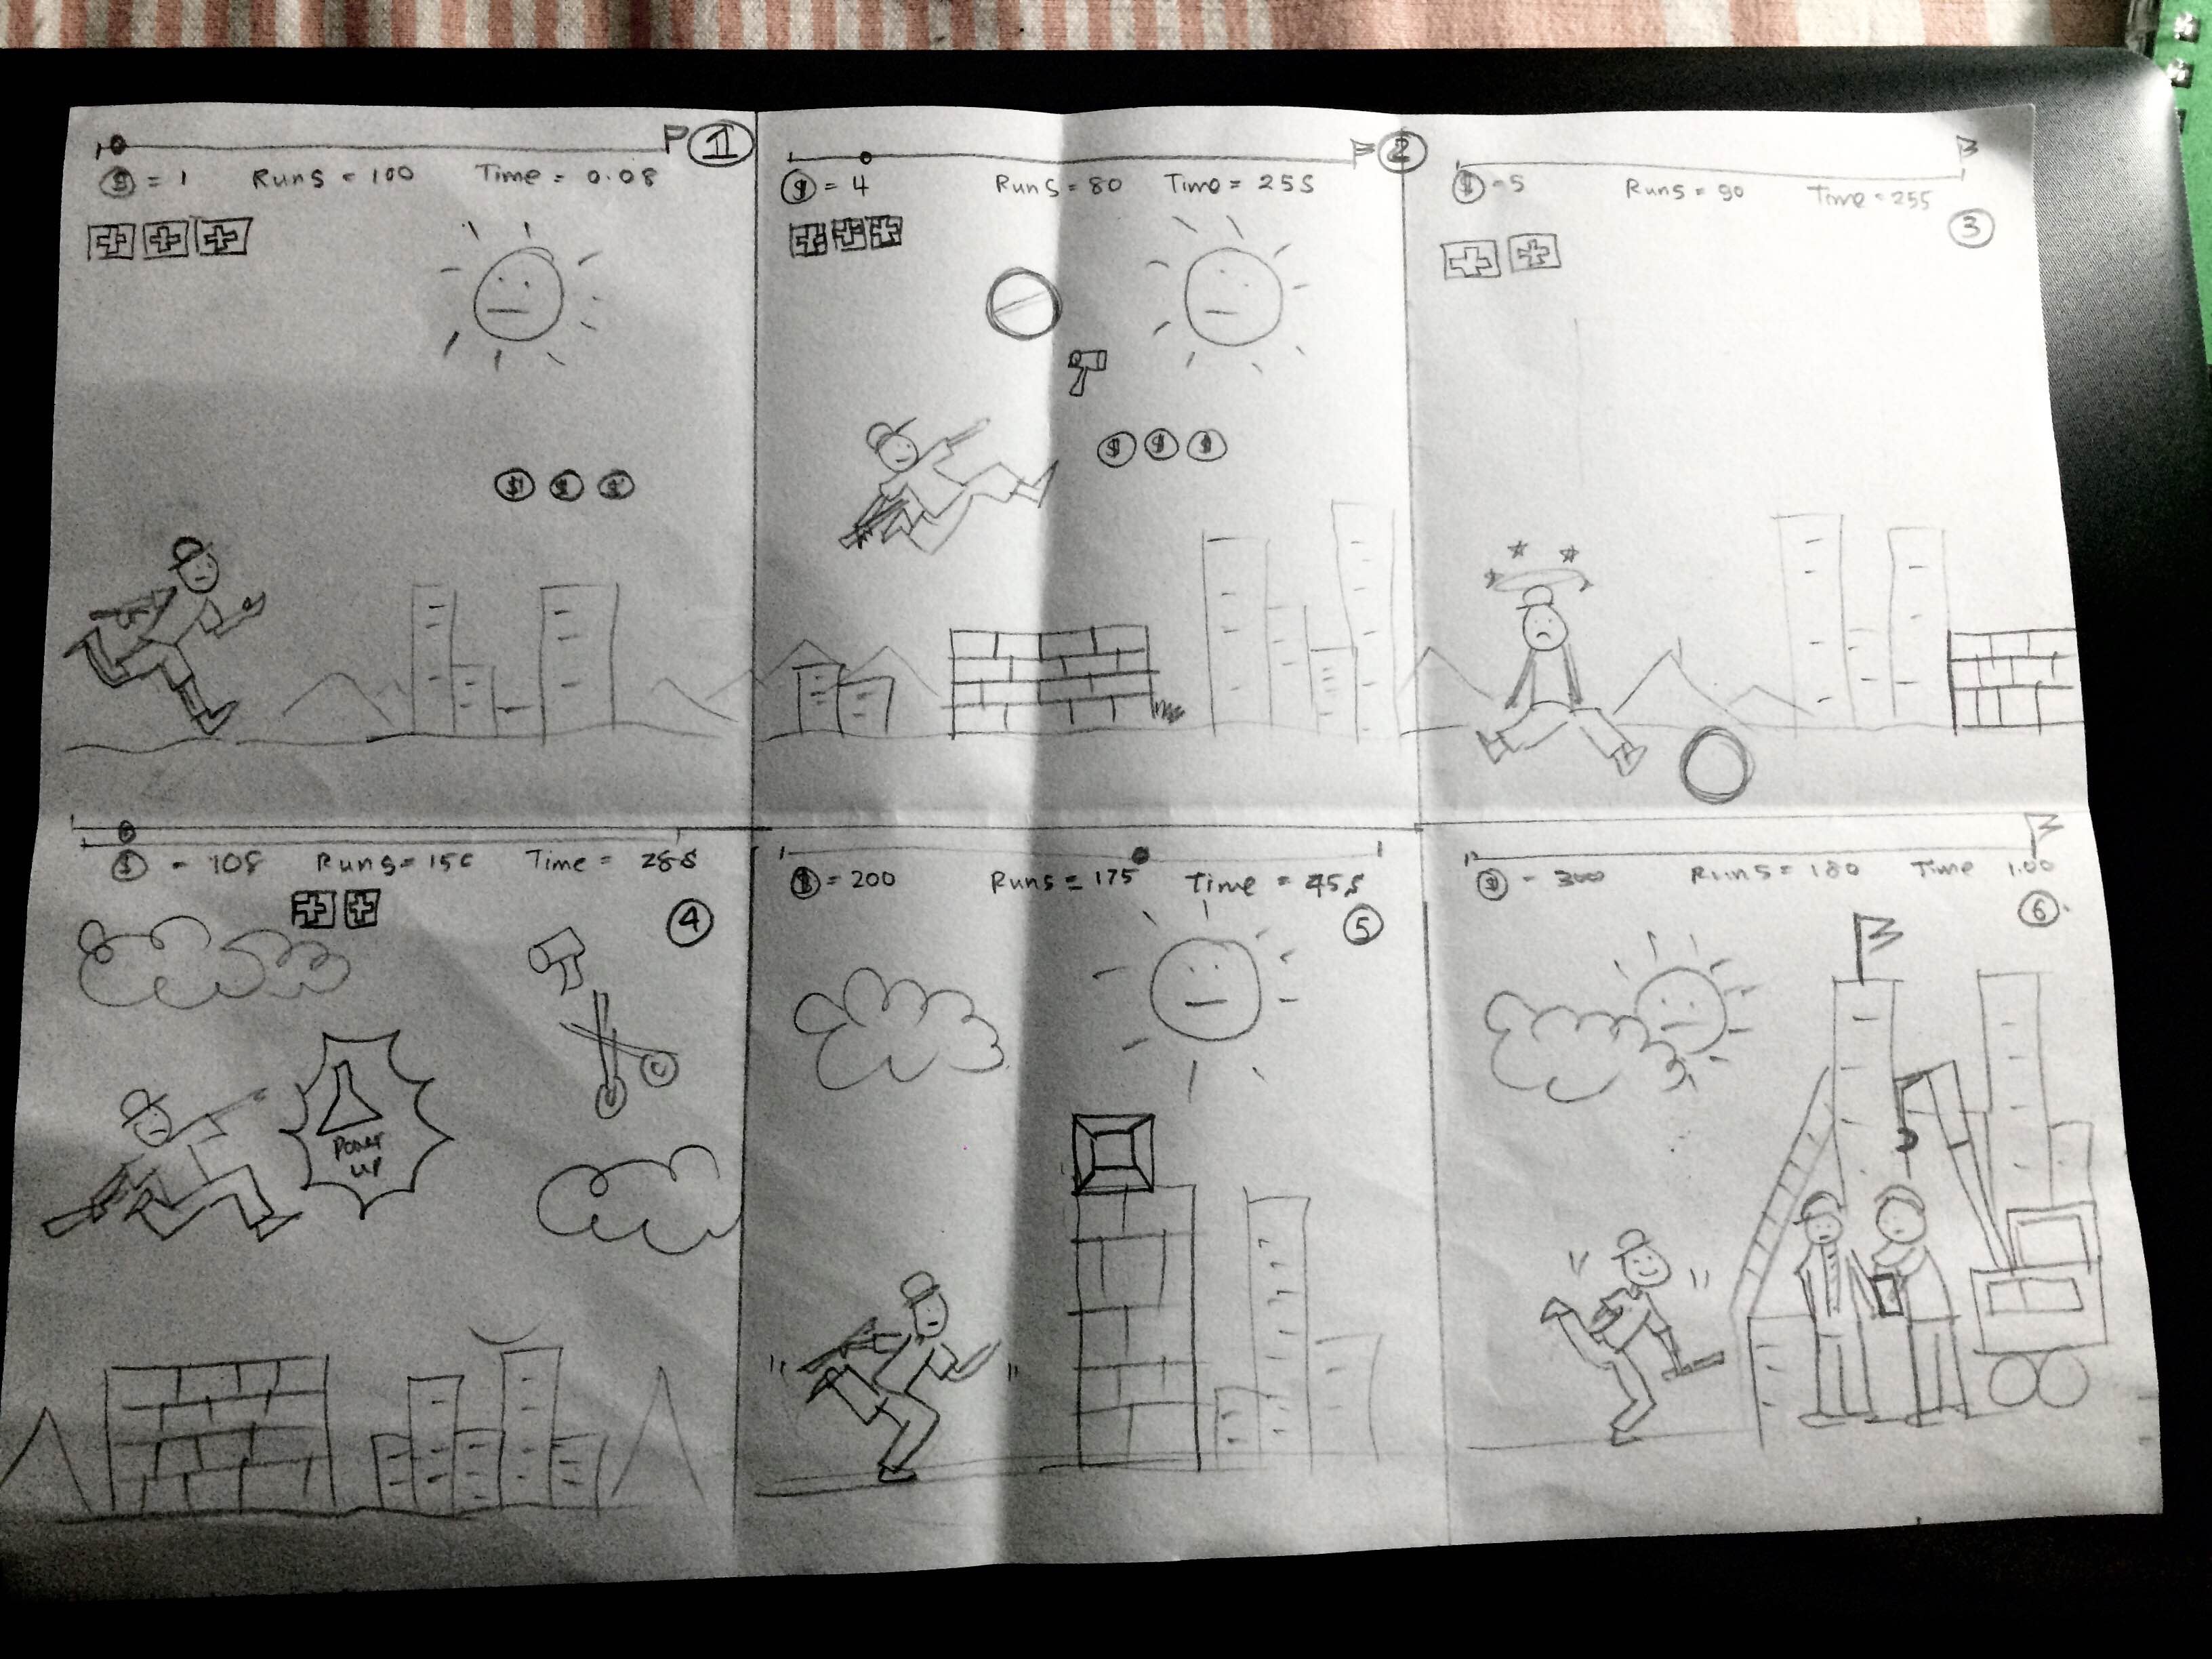 1
$ = 1 Runs = 100 Time = 0.08
$ $ $
2
$ = 4 Runs = 80 Time = 25s
$ $ $
$ = 5 Runs = 90 Time = 25s
3
$ = 108 Runs = 150 Time = 28s
4
Power
up
$ = 200 Runs = 175 Time = 45s
5
$ = 300 Runs = 180 Time 1.00
6